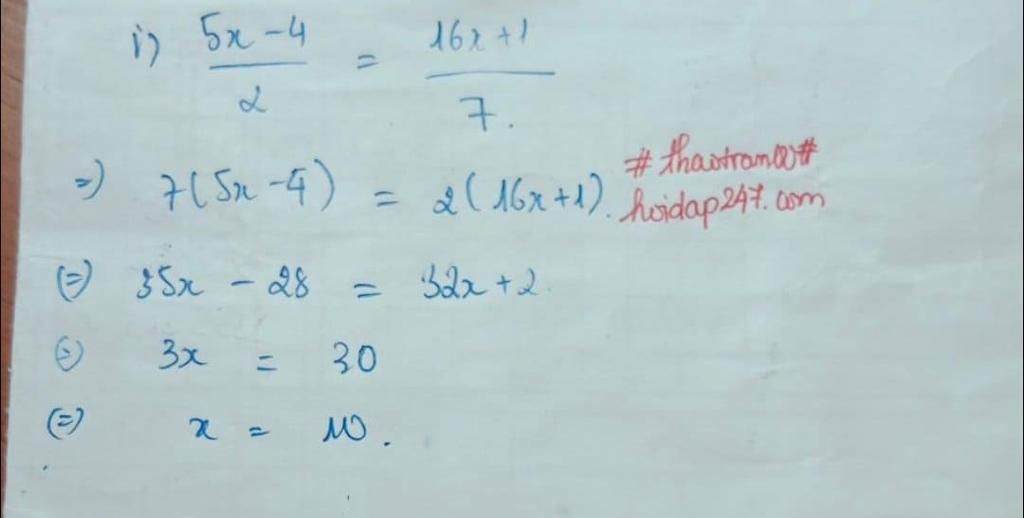 i) \frac{5x-4}{2} = \frac{16x+1}{7}.
=) 7(5x-4) = 2(16x+1). #thaotram@#
hoidap247.com
(=) 35x - 28 = 32x + 2
(=) 3x = 30
(=) x = 10.